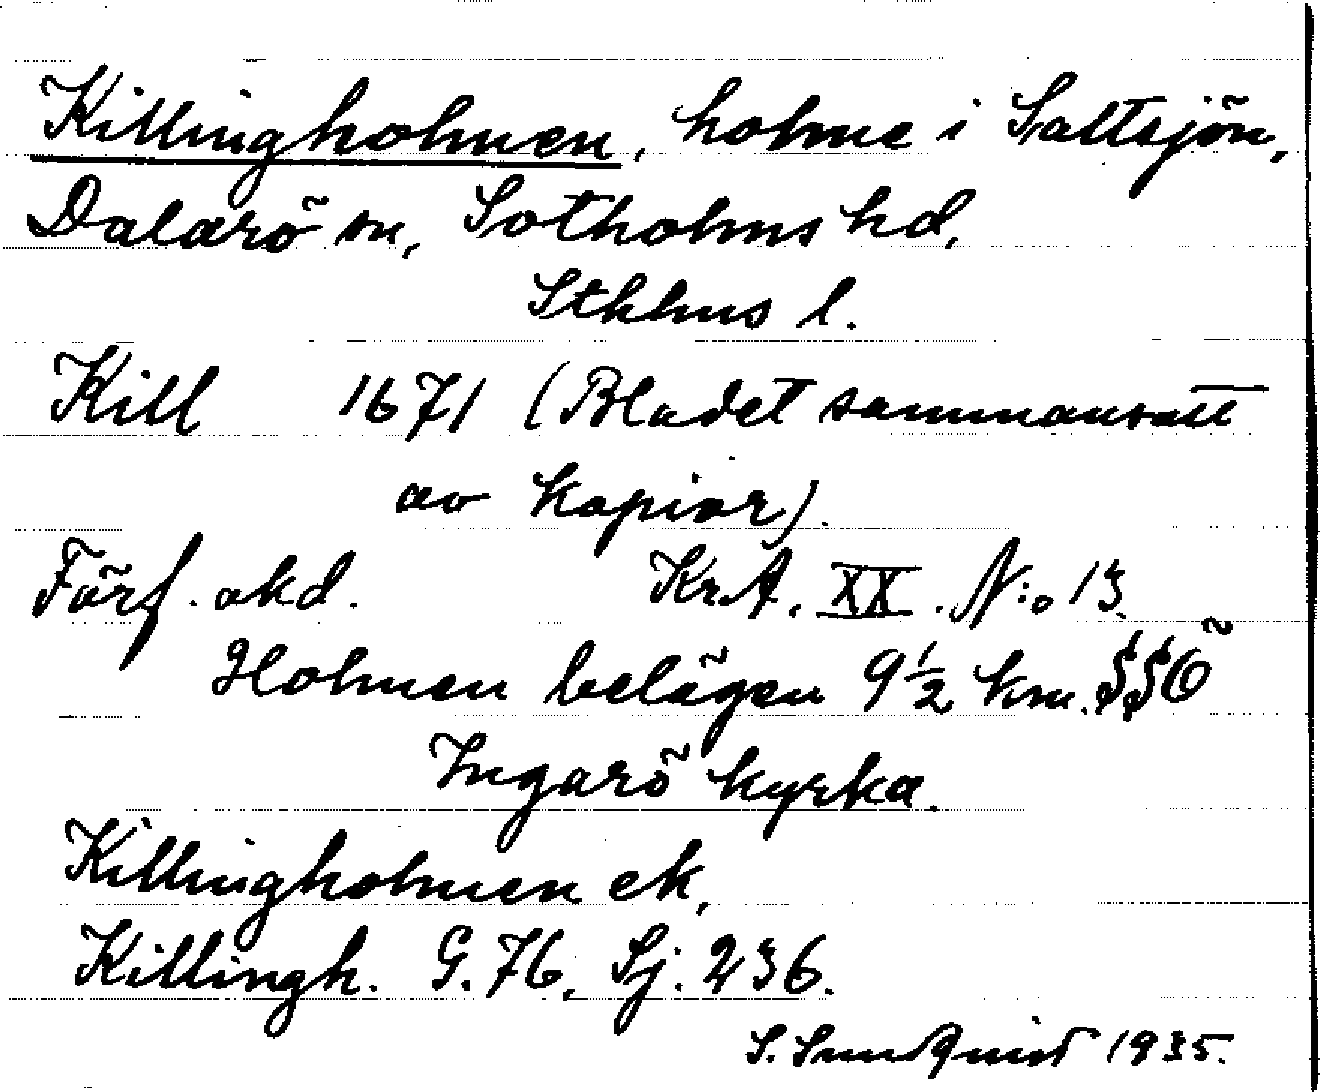 Killingholmen, holme i Saltsjön,
Dalarö sn, Sotholms hd,
Stkhns l.
Kill 1671 (Bladet sammansatt
av kopior).
Förf. okd. Kr.A. XX. N:o 13.
Holmen belägen 9½ km. SSO
Ingarö kyrka.
Killingholmen ek,
Killingh. G. 76, Sj. 236.
S. Sundquist 1935.